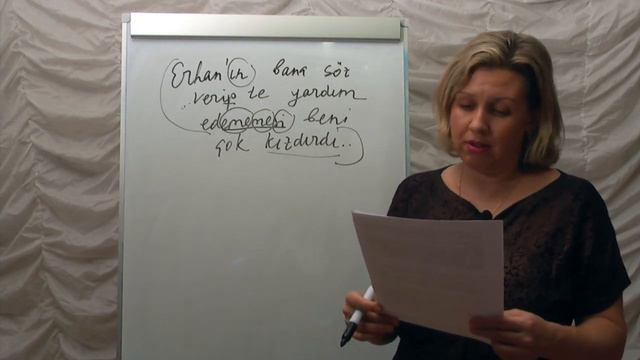 Erhan'ın bana söz
verip te yardım
edememesi beni
çok kızdırdı..